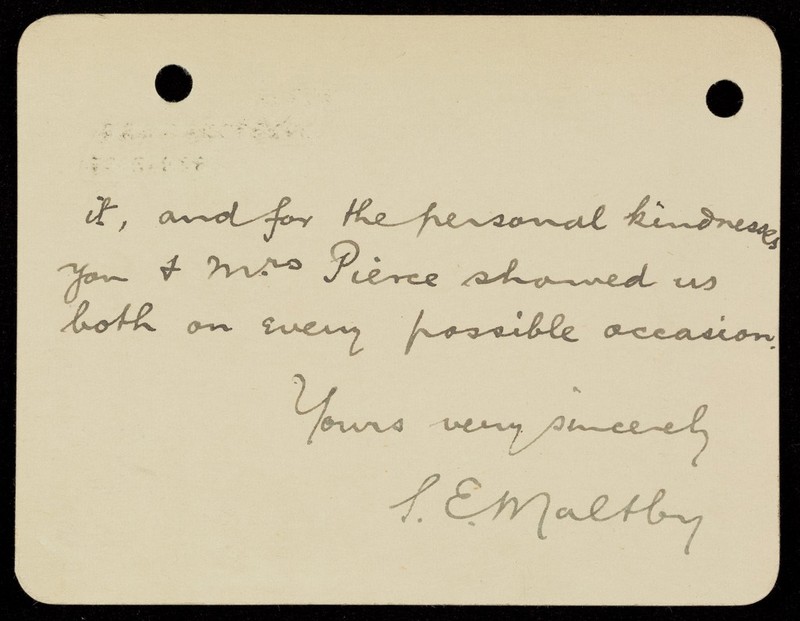 it, and for the personal kindnesses
you & Mrs Pierce showed us
both on every possible occasion.
Yours very sincerely
S. E. Maltby